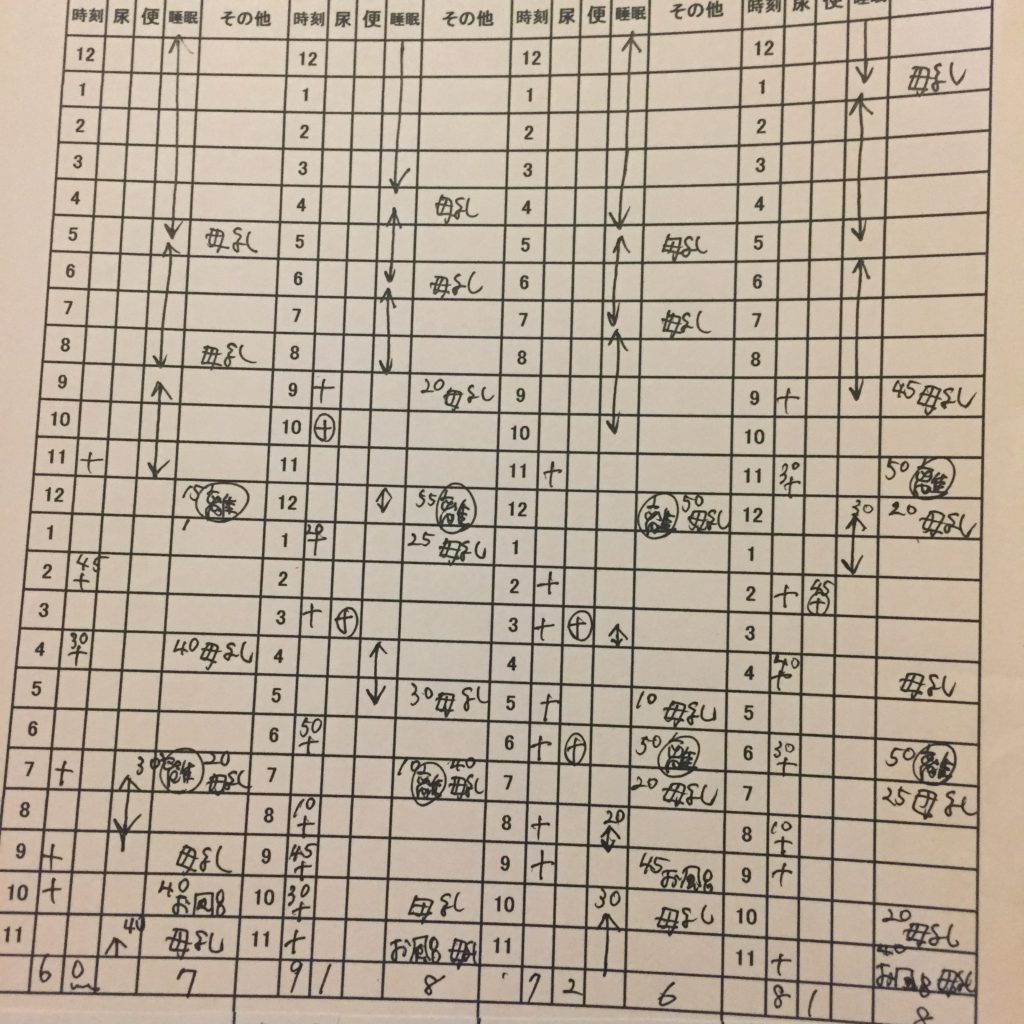 時刻 尿 便 睡眠 その他 時刻 尿 便 睡眠 その他 時刻 尿 便 睡眠 その他 時刻 尿 便 睡眠
12 12 12 12
1 1 1 1 母よし
2 2 2 2
3 3 3 3
4 4 母よし 4 4
5 母よし 5 5 母よし 5
6 6 母よし 6 6
7 7 7 母よし 7
8 母よし 8 8 8
9 9 + 20 母よし 9 9 + 45 母よし
10 10 + 10 10
11 + 11 11 + 11 30 + 50 離
12 15 離 12 55 離 12 離 50 母よし 12 30 20 母よし
1 1 20 + 25 母よし 1 1
2 45 + 2 2 + 2 + 45 +
3 3 + + 3 + + 3
4 30 + 40 母よし 4 4 4 + 母よし
5 5 30 母よし 5 + 10 母よし 5
6 6 50 + 6 + + 50 離 6 30 + 50 離
7 + 30 離 20 母よし 7 10 離 40 母よし 7 20 母よし 7 25 母よし
8 8 10 + 8 + 20 8 10 +
9 + 母よし 9 45 + 9 + 45 お風呂 9 +
10 + 40 お風呂 10 30 + 母よし 10 30 母よし 10 20 母よし
11 40 母よし 11 + お風呂 母よし 11 11 + 40 お風呂 母よし
6 0 7 9 1 8 7 2 6 8 1 8